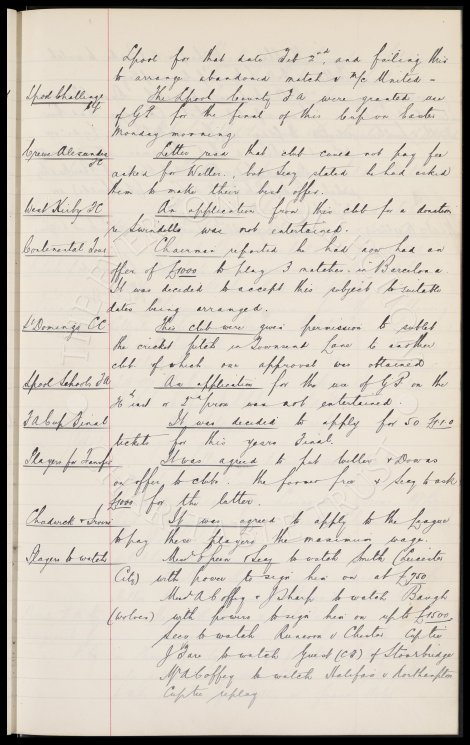 L'pool for that date Feb 2nd, and failing this
to arrange abandoned match v M/c United -
L'pool Challenge Cup
The L'pool County F A were granted use
of G.P. for the final of this Cup on Easter
Monday morning.
Crewe Alexandra FC
Letter read that club could not pay fee
asked for Weller, but Secy stated he had asked
them to make their best offer.
West Kirby FC
An application from this club for a donation
re Swindells was not entertained.
Continental Tour
Chairman reported he had now had an
offer of £1000 to play 3 matches in Barcelona.
It was decided to accept this subject to suitable
dates being arranged.
St Domingo CC
This club were given permission to sublet
the cricket pitch in Townsend Lane to another
club of which our approval was obtained.
L'pool Schools FA
An application for the use of G.P. on the
inst or prox was not entertained.
F A Cup Final
It was decided to apply for 50
tickets for this years Final.
Players for Transfer
It was agreed to put Weller & Downs
on offer to clubs. The former free & Secy to ask
£1000 for the latter.
Chadwick & Irvine
It was agreed to apply to the League
to pay these players the maximum wage.
Players to watch
Messrs Green & Secy to watch Smith (Leicester
City) with power to sign him on at £750
Messrs A Coffey & J Sharp to watch Baugh
(Wolves) with powers to sign him on up to £1500.
Secy to watch Runcorn v Chester Cup tie
J to watch Guest (CF) of Stourbridge
Mr A Coffey to watch Halifax v Northampton
Cuptie replay